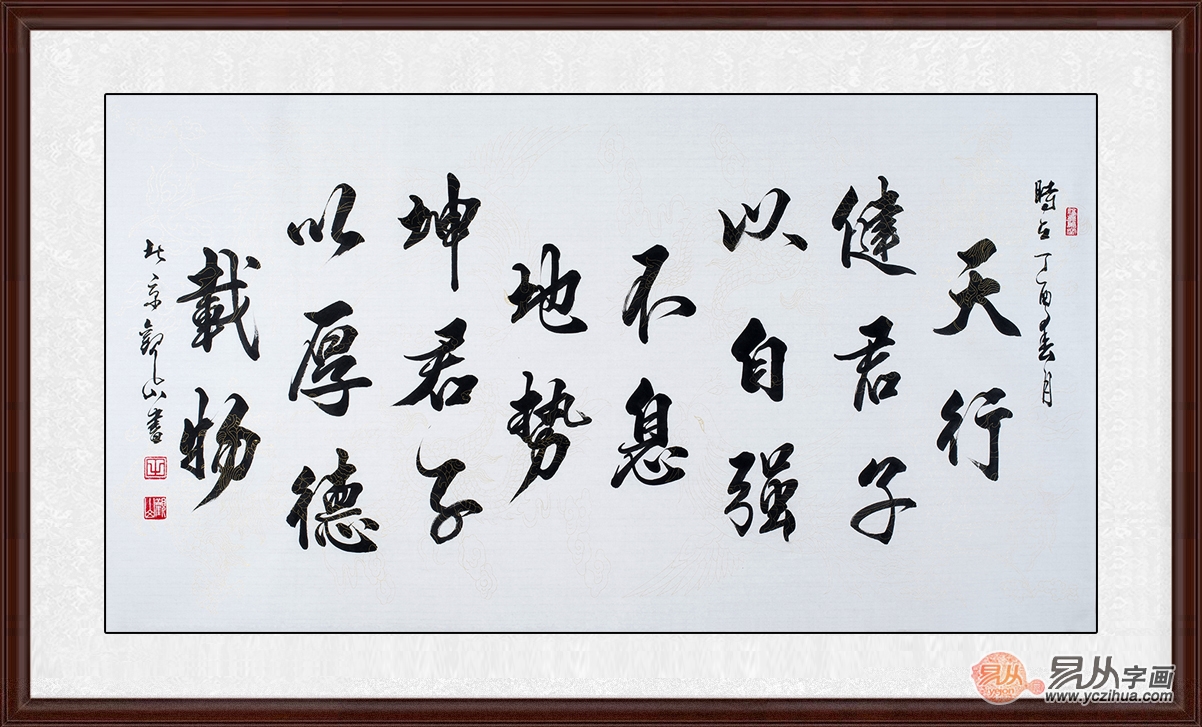 時在丁酉年春月
天行
健君子
以自強
不息
地勢
坤君子
以厚德
載物
北京觀山書
易从字画
www.yczihua.com